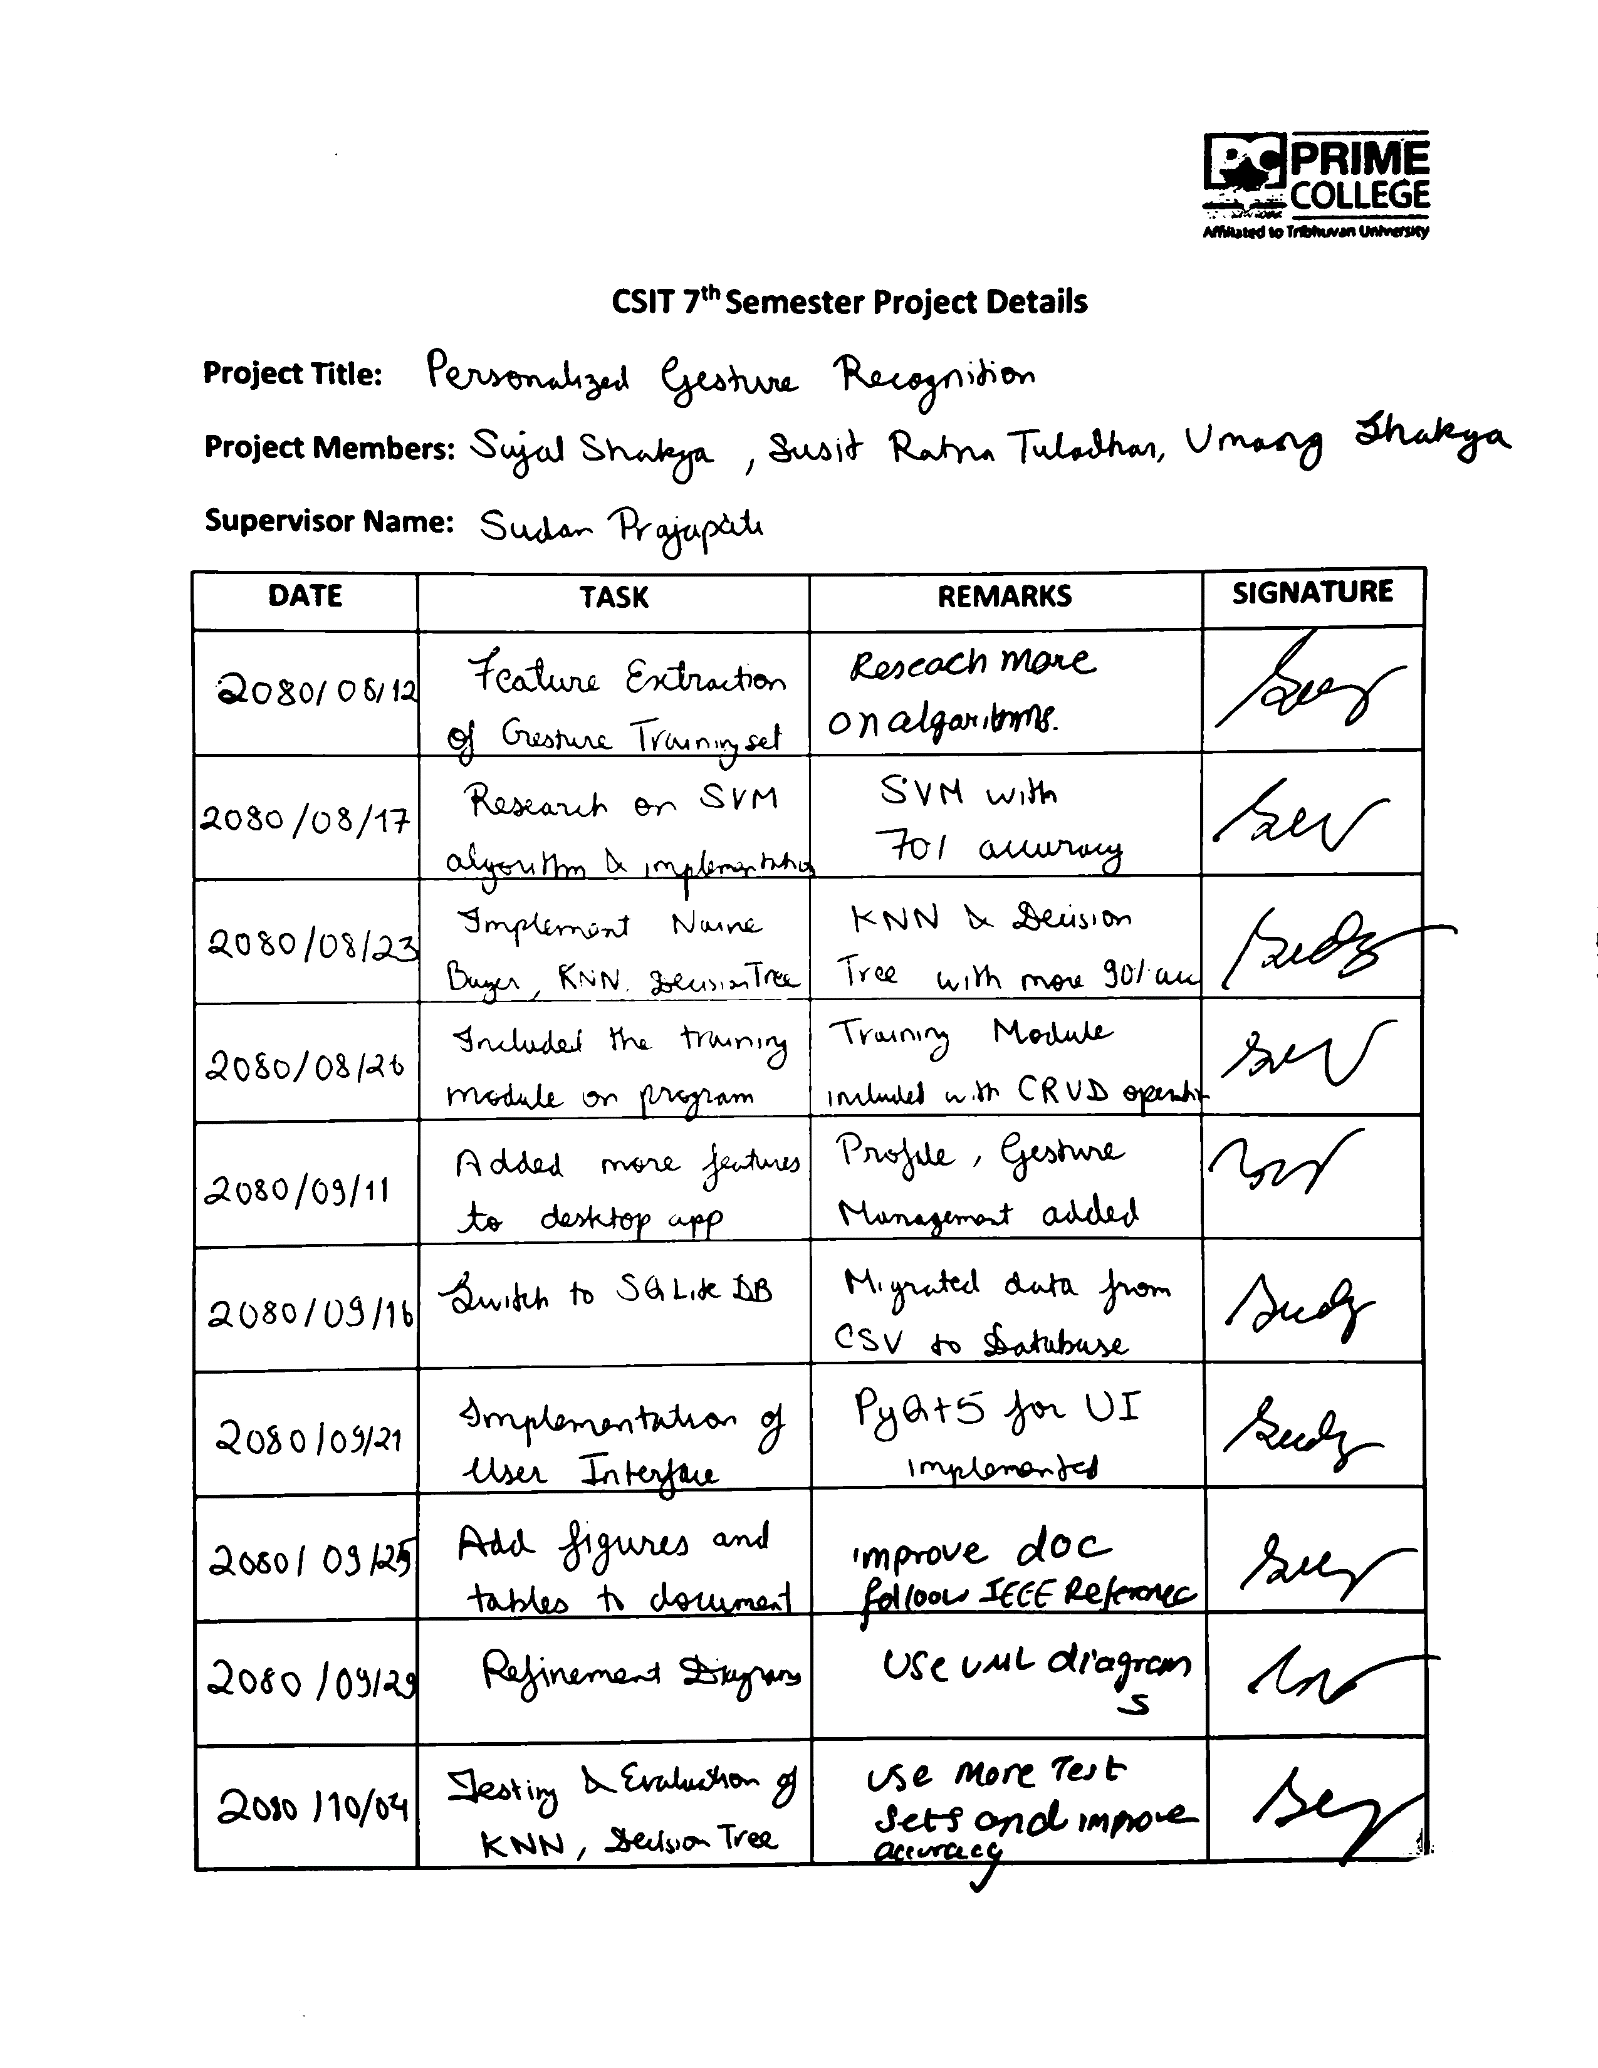 PC PRIME
COLLEGE
Affiliated to Tribhuvan University
CSIT 7th Semester Project Details
Project Title: Personalized Gesture Recognition
Project Members: Sujal Shakya, Susit Ratna Tuladhar, Umang Shakya
Supervisor Name: Sudan Prajapati
DATE TASK REMARKS SIGNATURE
2080/08/12
Feature Extraction
of Gesture Training set
Reseach more
on algorithms.
2080/08/17
Research on SVM
algorithm & implementation
SVM with
70% accuracy
2080/08/23
Implement Naive
Bayer, KNN. Decision Tree
KNN & Decision
Tree with more 90% acc
2080/08/26
Included the training
module on program
Training Module
included with CRUD operation
2080/09/11
Added more features
to desktop app
Profile, Gesture
Management added
2080/09/16
Switch to SQLite DB
Migrated data from
CSV to Database
2080/09/21
Implementation of
User Interface
PyQt5 for UI
implemented
2080/09/25
Add figures and
tables to document
improve doc
follow IEEE Reference
2080/09/29
Refinement Diagrams
USE UML diagram
s
2080/10/04
Testing & Evaluation of
KNN, Decision Tree
use more Test
sets and improve
accuracy